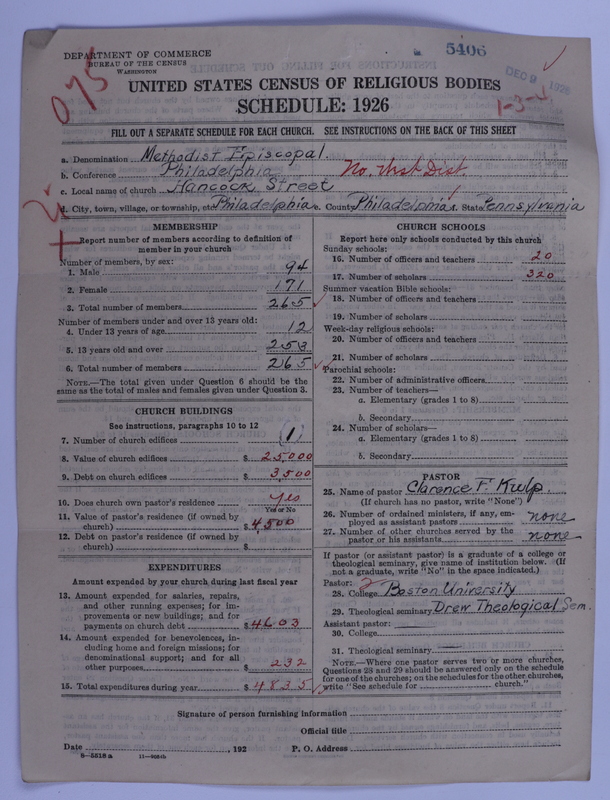 DEPARTMENT OF COMMERCE
BUREAU OF THE CENSUS
WASHINGTON
5406
DEC 9 1926
075
1-3-4
UNITED STATES CENSUS OF RELIGIOUS BODIES
SCHEDULE: 1926
FILL OUT A SEPARATE SCHEDULE FOR EACH CHURCH. SEE INSTRUCTIONS ON THE BACK OF THIS SHEET
a. Denomination Methodist Episcopal.
b. Conference Philadelphia No. West Dist.
c. Local name of church Hancock Street
d. City, town, village, or township, etc. Philadelphia e. County Philadelphia f. State Pennsylvania
MEMBERSHIP
Report number of members according to definition of
member in your church
Number of members, by sex:
1. Male 94
2. Female 171
3. Total number of members 265
Number of members under and over 13 years old:
4. Under 13 years of age 12
5. 13 years old and over 253
6. Total number of members 265
NOTE.—The total given under Question 6 should be the
same as the total of males and females given under Question 3.
CHURCH BUILDINGS
See instructions, paragraphs 10 to 12
7. Number of church edifices (1)
8. Value of church edifices $ 25,000
9. Debt on church edifices $ 3,500
10. Does church own pastor's residence yes
Yes or No
11. Value of pastor's residence (if owned by
church) $ 4,500
12. Debt on pastor's residence (if owned by
church) $
EXPENDITURES
Amount expended by your church during last fiscal year
13. Amount expended for salaries, repairs,
and other running expenses; for im-
provements or new buildings; and for
payments on church debt $ 4603
14. Amount expended for benevolences, in-
cluding home and foreign missions; for
denominational support; and for all
other purposes $ 232
15. Total expenditures during year $ 4835
CHURCH SCHOOLS
Report here only schools conducted by this church
Sunday schools:
16. Number of officers and teachers 20
17. Number of scholars 320
Summer vacation Bible schools:
18. Number of officers and teachers
19. Number of scholars
Week-day religious schools:
20. Number of officers and teachers
21. Number of scholars
Parochial schools:
22. Number of administrative officers
23. Number of teachers—
a. Elementary (grades 1 to 8)
b. Secondary
24. Number of scholars—
a. Elementary (grades 1 to 8)
b. Secondary
PASTOR
25. Name of pastor Clarence F. Kulp
(If church has no pastor, write "None")
26. Number of ordained ministers, if any, em-
ployed as assistant pastors none
27. Number of other churches served by the
pastor or his assistants none
If pastor (or assistant pastor) is a graduate of a college or
theological seminary, give name of institution below. (If
not a graduate, write "No" in the space indicated.)
Pastor: 2
28. College Boston University
29. Theological seminary Drew Theological Sem.
Assistant pastor:
30. College
31. Theological seminary
NOTE.—Where one pastor serves two or more churches,
Questions 28 and 29 should be answered only on the schedule
for one of the churches; on the schedules for the other churches,
write "See schedule for church."
Signature of person furnishing information
Official title
Date , 192 P. O. Address
8-5518a 11-9054b